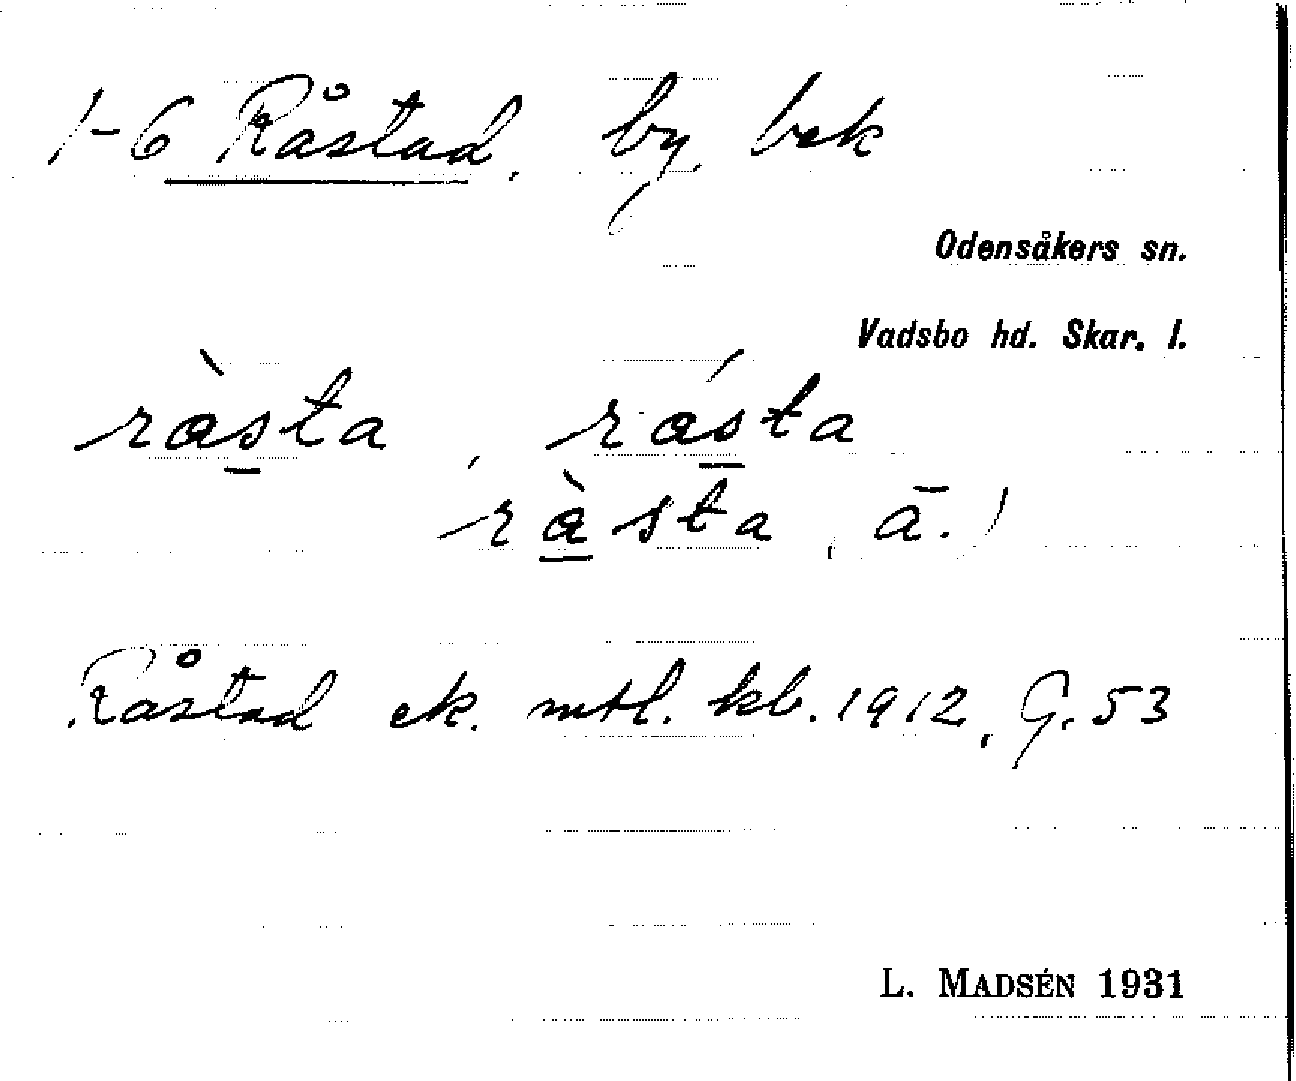 1-6 Råstad, by, bek
Odensåkers sn.
Vadsbo hd. Skar. l.
ràs̱ta, rás̱ta
rà̱sta, ā.)
Råstad ek. mtl. kb. 1912, G. 53
L. MADSÉN 1931